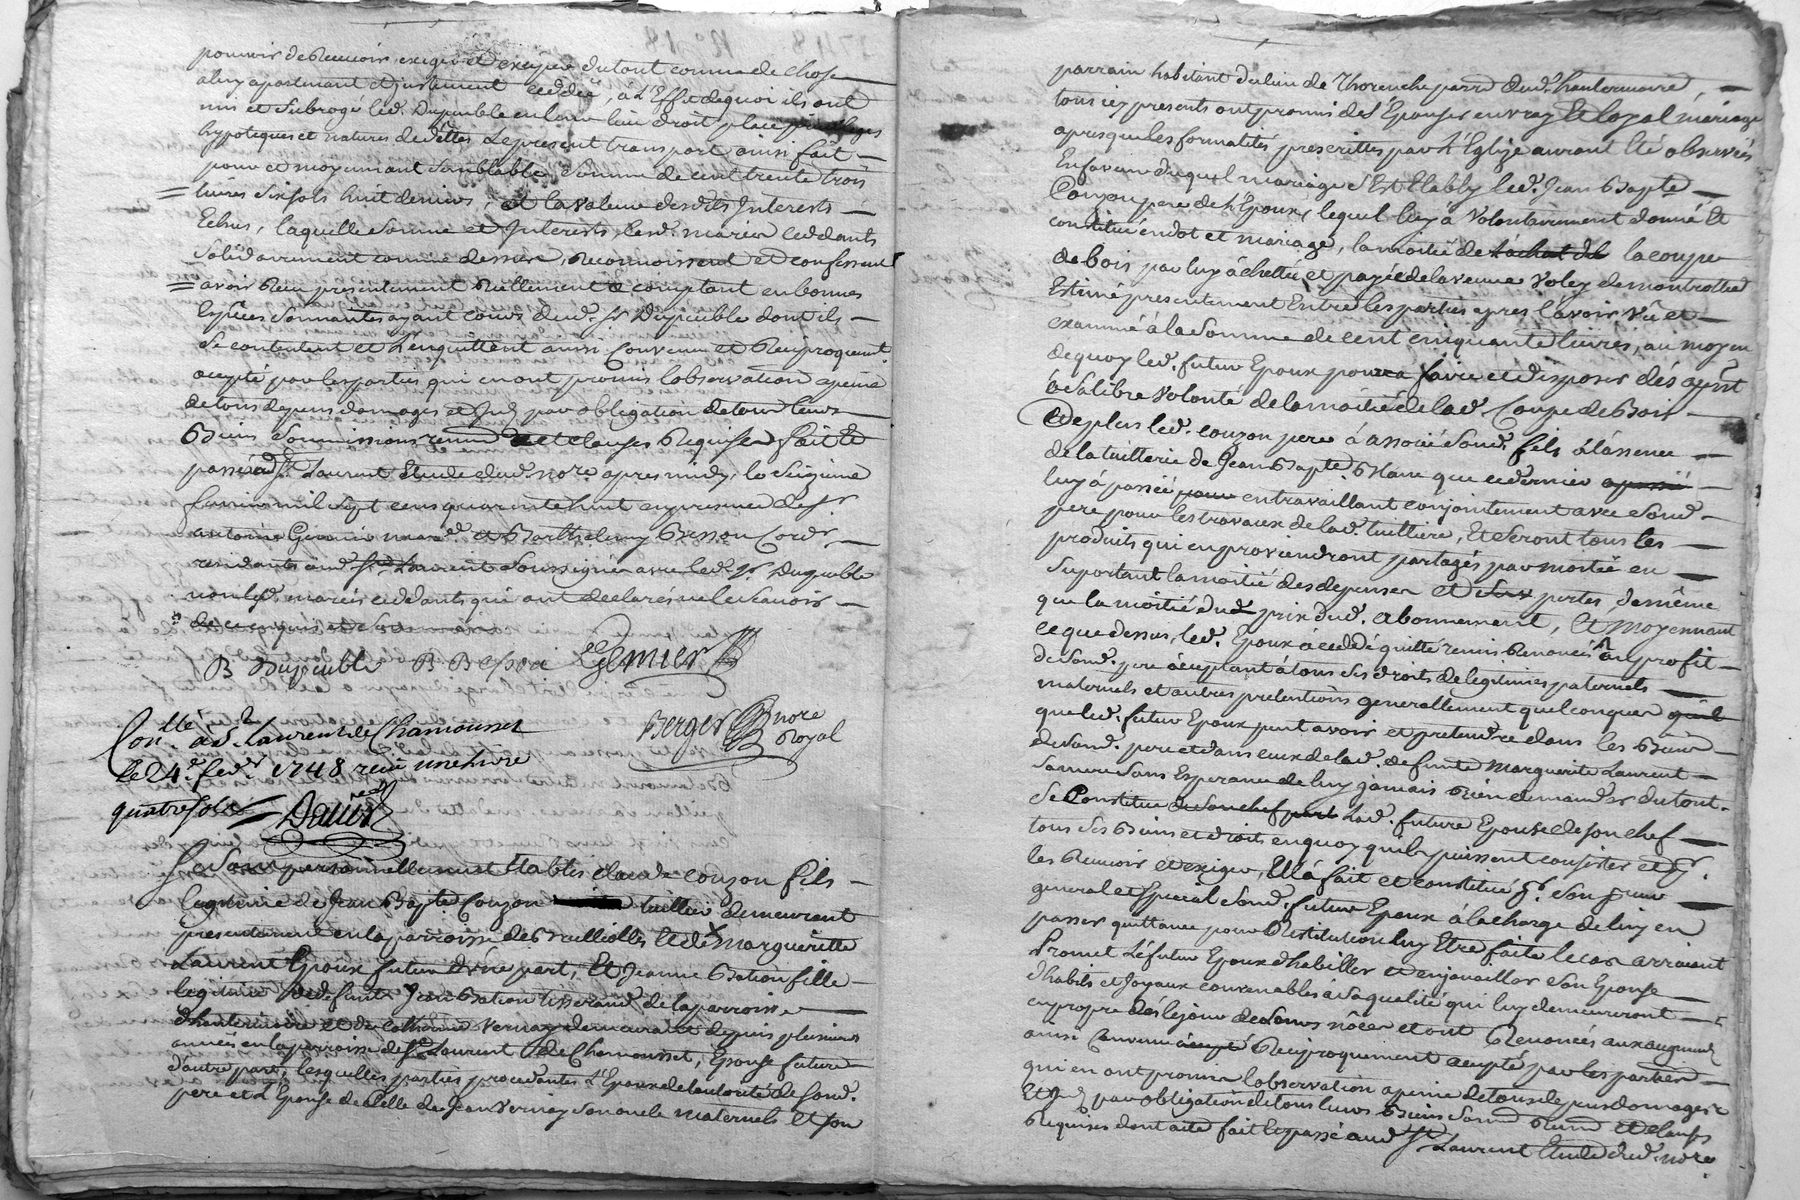 pouvoir de Recevoir, exiger et exciper du tout comme de chose
a luy apartenant et justement ceddée, a L'Effet de quoi ils ont
mis et Subrogé led. Dupeuble en leur lieu droit place privileges
hypoteques et natures de dettes Le present transport ainsi fait
pour et moyennant semblable Somme de cent trente trois
livres Six sols huit deniers, et la valeur desdits Interests
Echus, laquelle Somme et Interests, lesd. mariés ceddants
Solidairement comme dessus, reconnoissent et confessent
avoir Reçu presentement Reellement et comptant en bonnes
Espèces Sonnantes ayant cours dud. Sr. Dupeuble dont ils
Se contentent et L'en quittent ainsi Convenu et Reciproquement
accepté par les parties qui en ont promis l'observation a peine
de tous depens domages et Int. par obligation de tous leurs
Biens Soumissions renon. et clauses Requises fait et
passé aud. St. Laurent Etude dud. nore. apres midy, le Seizieme
fevrier mil sept cens quarente huit en presence de Sr.
antoine Gemier mard. et Barthelemy Besson Cordr.
residants aud. St. Laurent Soussignés avec led. Sr. Dupeuble
non lesd. mariés ceddants qui ont declarés ne le scavoir
de ce enquis et
B Dupeuble B. Besson Gemier
Berger nore Royal
Con.llé a St. Laurent de Chamousset
le 24e. fevr. 1748 reçu une livre
quatre Sols
Se Sont personnellement Etablis Claude Couzon fils
legitime de Jean Bapte Couzon tuillier demeurant
presentement en la parroisse de Brullioles et de Margueritte
Laurent Epoux futur d'une part, Et Jeanne Bation fille
legitime de defunt Jean Bation tisserand de la parroisse
d'hauterivoire et de Catherine Vernay demeurant depuis plusieurs
années en la parroisse de St. Laurent de Chamousset, Epouse future
d'autre part, lesquelles parties procedantes L'Epoux de l'autorité de Sond.
pere et L'Epouse de Celle de Jean Vernay Son oncle maternel et Son
parrain habitant du lieu de Thorenche parr. dud. hauterivoire,
tous icy presents ont promis de S'Epouser en vray Et loyal mariage
apres que les formalités prescrittes par L'Eglize auront Eté observées
En faveur duquel mariage S'Est Etably led. Jean Bapte
Couzon pere de L'Epoux, lequel luy a Volontairement donné Et
constitué en dot et mariage, la moitié de la coupe
de bois par luy achettée et payée de la veuve Voley de montrottier
Estimé presentement Entre les parties apres l'avoir vû et
examiné à la Somme de cent cinquante livres, au moyen
de quoy led. futur Epoux pourra faire et disposer dés a present
à Sa libre Volonté de la moitié de lad. Coupe de Bois
Et de plus led. couzon pere à associé Sond. fils à l'assence
de la tuillerie de Jean Bapte Blanc que ce dernier
luy à passée en travaillant conjointement avec Sond.
pere pour les travaux de lad. tuilliere, Et Seront tous les
produits qui en proviendront partagés par moitié en
Suportant la moitié des depenses et pertes, de même
que la moitié du prix dud. abonnement, Et moyennant
ce que dessus, led. Epoux à ceddé quitté remis Renoncé au profit
de Sond. pere acceptant à tous Ses droits de legitimes paternels
maternels et autres pretentions generallement quelconques
que led. futur Epoux peut avoir et pretendre dans les Biens
de Sond. pere et dans ceux de lad. defunte Marguerite Laurent
Sa mere Sans Esperance de luy jamais Rien demander du tout.
Se Constitue lad. future Epouse de Son chef
tous Ses Biens et droits en quoy qu'ils puissent consister et pr.
les Recevoir et exiger, Elle à fait et constitué pr. Son procur
general et Special Sond. futur Epoux à la charge de luy en
passer quittance pour Restitution luy Etre faite le cas arrivant
Promet Le futur Epoux d'habiller et enjoualler Son Epouse
d'habits et Joyaux convenables à Sa qualité qui luy demeureront
en propre Dés le jour de Leurs nôces et ont Renoncés aux augments
ainsi Convenu Reciproquement accepté par les parties
qui en ont promis l'observation a peine de tous depens domages
Et Int. par obligation de tous leurs Biens Soum. Renon. et clauses
Requises dont acte fait et passé aud. St. Laurent Etude dud. nore